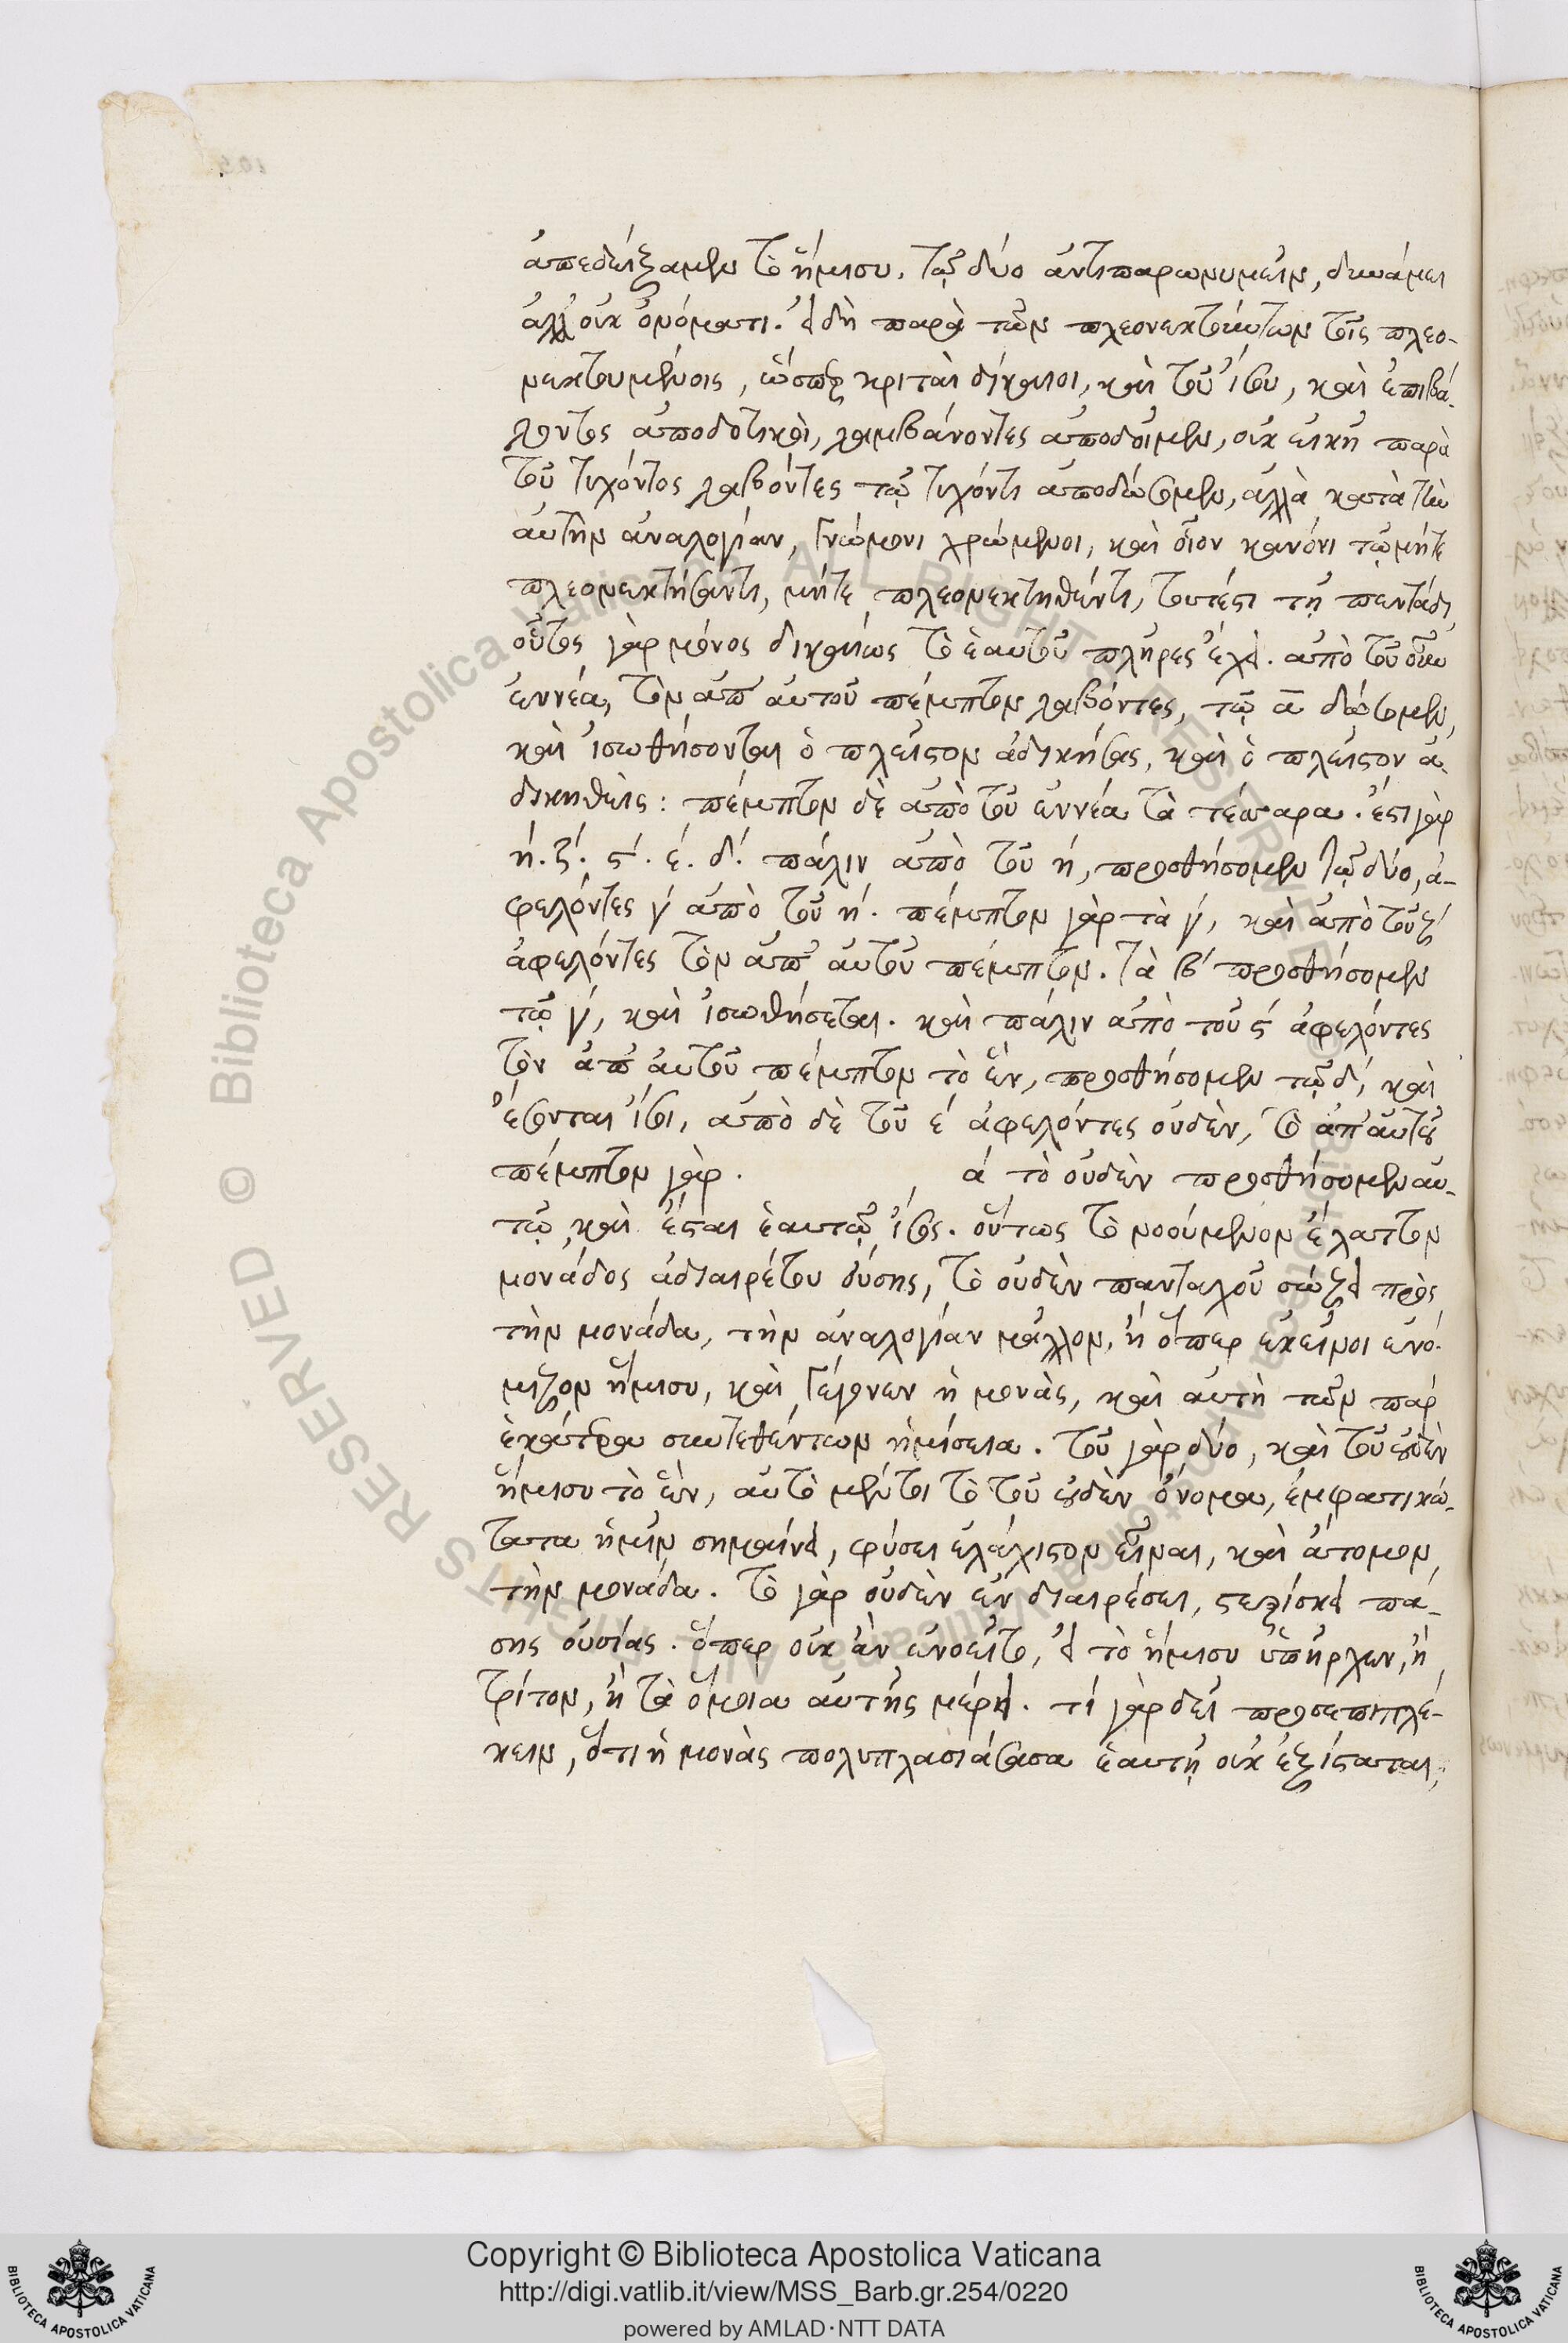 ἀπεδείξαμεν τὸ ἥμισυ. τῷ δύο ἀντιπαρωνυμεῖν, δυνάμει
ἀλλ' οὐκ ὀνόματι. εἰ δὴ παρὰ τῶν πλεονεκτούντων τοῖς πλεο-
νεκτουμένοις, ὥσπερ κριταὶ δίκαιοι, καὶ τοῦ ἴσου, καὶ ἐπιβά-
λοντος ἀποδοτικοὶ, λαμβάνοντες ἀποδοῖμεν, οὐκ εἰκῆ παρὰ
τοῦ τυχόντος λαβόντες τῷ τυχόντι ἀποδώσομεν, ἀλλὰ κατὰ τὴν
αὐτὴν ἀναλογίαν, γνώμονι χρώμενοι, καὶ οἷον κανόνι τῷ μήτε
πλεονεκτήσαντι, μήτε πλεονεκτηθέντι, τουτέστι τῇ πεντάδι
οὗτος γὰρ μόνος δικαίως τὸ ἑαυτοῦ πλῆρες ἔχει. ἀπὸ τοῦ οὖν
ἐννέα, τὸν ἀπ' αὐτοῦ πέμπτον λαβόντες, τῷ α δώσομεν,
καὶ ἰσωθήσονται ὁ πλεῖστον ἀδικήσας, καὶ ὁ πλεῖστον ἀ-
δικηθείς: πέμπτον δὲ ἀπὸ τοῦ ἐννέα τὰ τέσσαρα. ἔστι γὰρ
ή. ζ΄. ϛ΄. έ. δ΄. πάλιν ἀπὸ τοῦ ή, προσθήσομεν τῷ δύο, ἀ-
φελόντες γ΄ ἀπὸ τοῦ ή. πέμπτον γὰρ τὰ γ΄, καὶ ἀπὸ τοῦ ζ΄
ἀφελόντες τὸν ἀπ' αὐτοῦ πέμπτον. τὰ β΄ προσθήσομεν
τῷ γ΄, καὶ ἰσωθήσεται. καὶ πάλιν ἀπὸ τοῦ ϛ΄ ἀφελόντες
τὸν ἀπ' αὐτοῦ πέμπτον τὸ ἓν, προσθήσομεν τῷ δ΄, καὶ
ἔσονται ἴσοι, ἀπὸ δὲ τοῦ έ ἀφελόντες οὐδὲν, τὸ ἀπ' αὐτοῦ
πέμπτον γὰρ. ά τὸ οὐδὲν προσθήσομεν αὐ-
τῷ, καὶ ἔσται ἑαυτῷ ἴσος. οὕτως τὸ νοούμενον ἔλαττον
μονάδος ἀδιαιρέτου οὔσης, τὸ οὐδὲν πανταχοῦ σώζει πρὸς
τὴν μονάδα, τὴν ἀναλογίαν μᾶλλον, ἢ ὅπερ ἐκεῖνοι ἐνό-
μιζον ἥμισυ, καὶ γείτνων ἡ μονὰς, καὶ αὐτὴ τῶν παρ'
ἑκάτερα συντεθέντων ἡμίσεια. τοῦ γὰρ δύο, καὶ τοῦ οὐδὲν
ἥμισυ τὸ ἓν, αὐτὸ μέντοι τὸ τοῦ οὐδὲν ὄνομα, ἐμφατικώ-
τατα ἡμῖν σημαίνει, φύσει ἐλάχιστον εἶναι, καὶ ἄτομον
τὴν μονάδα. τὸ γὰρ οὐδὲν ἐν διαιρέσει, στερίσκει πά-
σης οὐσίας. ὅπερ οὐκ ἂν ἐνοεῖτο, εἰ τὸ ἥμισυ ὑπῆρχεν, ἢ
τρίτον, ἢ τὰ ὅμοια αὐτῆς μέρη. τί γὰρ δεῖ προσεπιπλέ-
κειν, ὅτι ἡ μονὰς πολυπλασιάσασα ἑαυτῇ οὐκ ἐξίσταται,
Copyright © Biblioteca Apostolica Vaticana
http://digi.vatlib.it/view/MSS_Barb.gr.254/0220
powered by AMLAD·NTT DATA